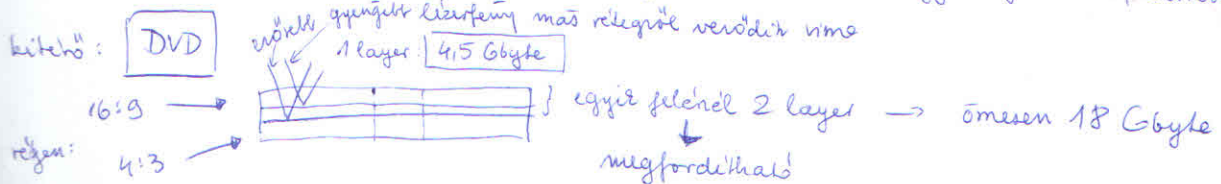 kitérő: DVD
erősebb gyengébb lézerfény más rétegről verődik vissza
1 layer: 4,5 Gbyte
16:9
egyik felénél 2 layer → összesen 18 Gbyte
régen: 4:3
megfordítható